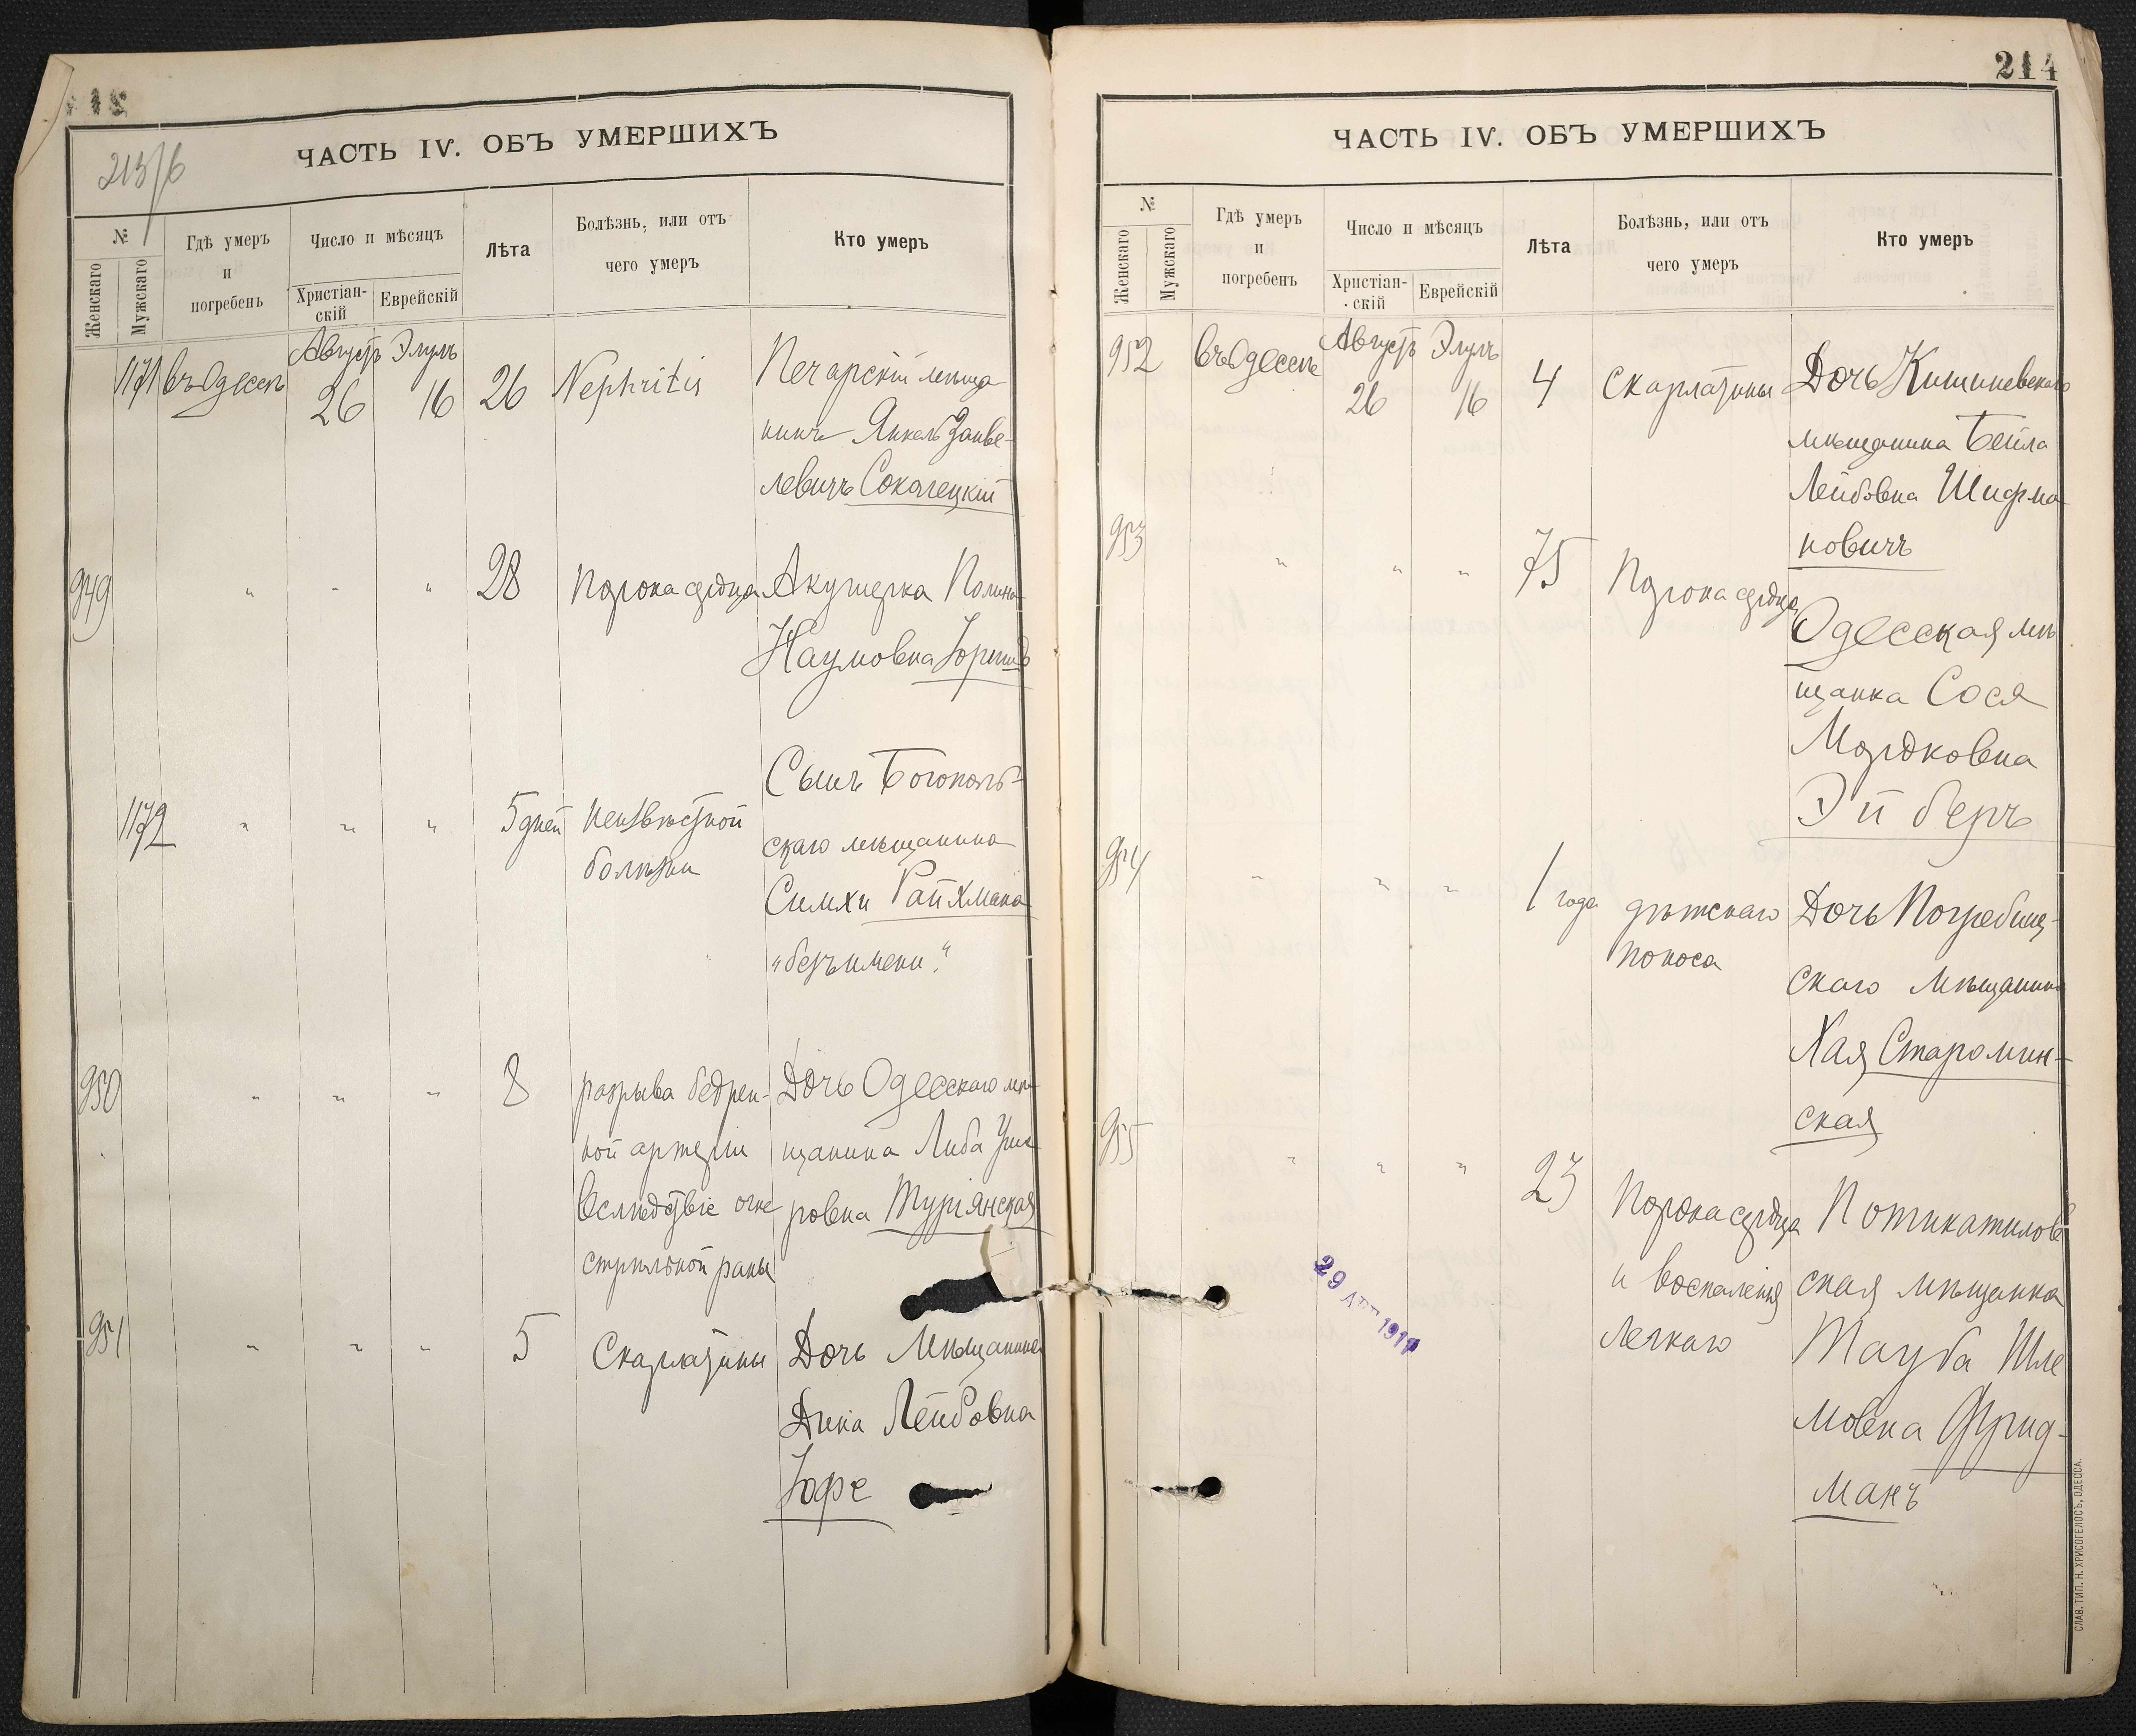 213/6
ЧАСТЬ IV. ОБЪ УМЕРШИХЪ
№
Женскаго
Мужскаго
Гдѣ умеръ
и
погребенъ
Число и мѣсяцъ
Христіан-
скій
Еврейскій
Лѣта
Болѣзнь, или отъ
чего умеръ
Кто умеръ
1171 въ Одессѣ Августъ 26 Элулъ 16 26 Nephritis Печарскій мѣща
нинъ Янкель Занве-
левичъ Сокалецкій
949 " " " 28 Порока сердца Акушерка Полина
Наумовна
1172 " " " 5 дней Неизвѣстной
болѣзни
Сынъ Богополь-
скаго мѣщанина
Симхи Райхмана
"безъ имени."
950 " " " 8 разрыва бедрен-
ной артеріи
вслѣдствіе огне
стрѣльной раны
Дочь Одесскаго мѣ-
щанина Либа
ровна Туріянская
951 " " " 5 Скарлатины Дочь Мѣщанина
Дина Лейбовна
Юфе
214
ЧАСТЬ IV. ОБЪ УМЕРШИХЪ
№
Женскаго
Мужскаго
Гдѣ умеръ
и
погребенъ
Число и мѣсяцъ
Христіан-
скій
Еврейскій
Лѣта
Болѣзнь, или отъ
чего умеръ
Кто умеръ
952 въ Одессѣ Августъ 26 Элулъ 16 4 Скарлатины Дочь Кишиневскаго
мѣщанина Бейла
Лейбовна Шифма
новичъ
953 " " " 75 Порока сердца
Одесская мѣ
щанка Сося
Мордковна
Эйберъ
954 " " " 1 года дѣтскаго
поноса
Дочь Погребищ-
скаго мѣщанина
Хая Старомин-
ская
955 " " " 23 Порока сердца
и воспаленія
легкаго
Потикатилов
ская мѣщанка
Тауба Шле
мовна Фрид-
манъ
29 АПР 1917
СЛАВ. ТИП. Н. ХРИСОГЕЛОСЪ, ОДЕССА.